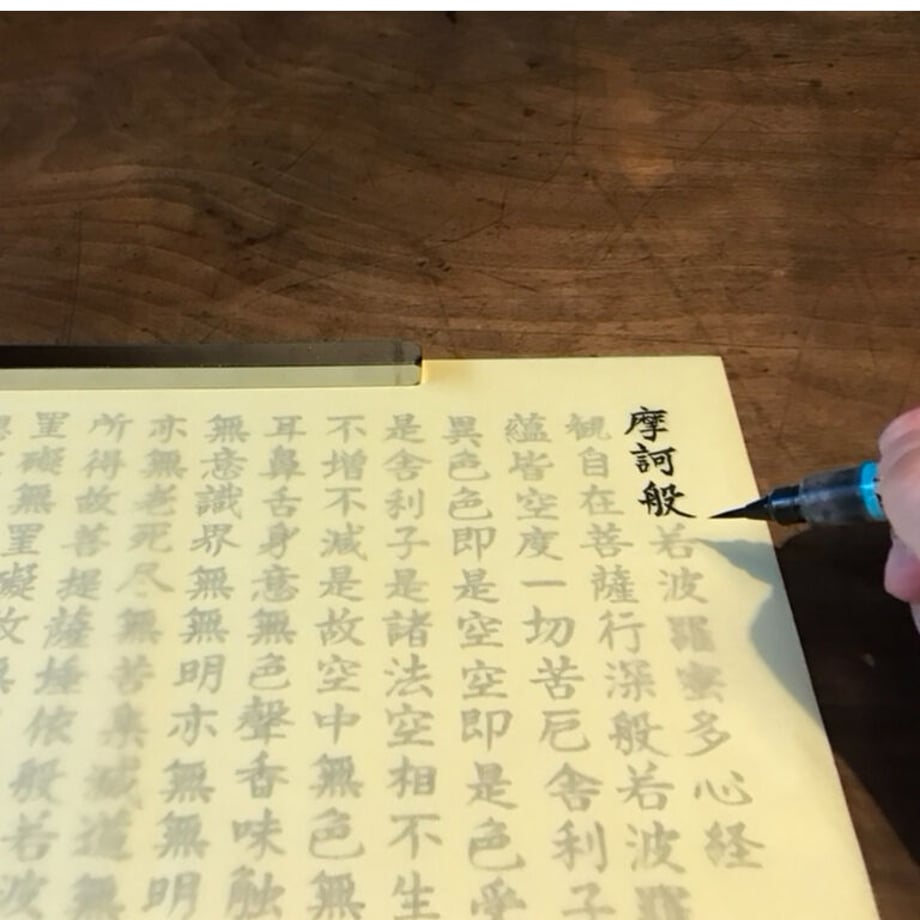 摩訶般若波羅蜜多心経
観自在菩薩行深般若波羅
蘊皆空度一切苦厄舎利子
異色色即是空空即是色受
是舎利子是諸法空相不生
不増不減是故空中無色無
耳鼻舌身意無色聲香味触
無意識界無無明亦無無明
亦無老死尽無苦集滅道無
所得故菩提薩埵依般若波
罣礙無罣礙故無